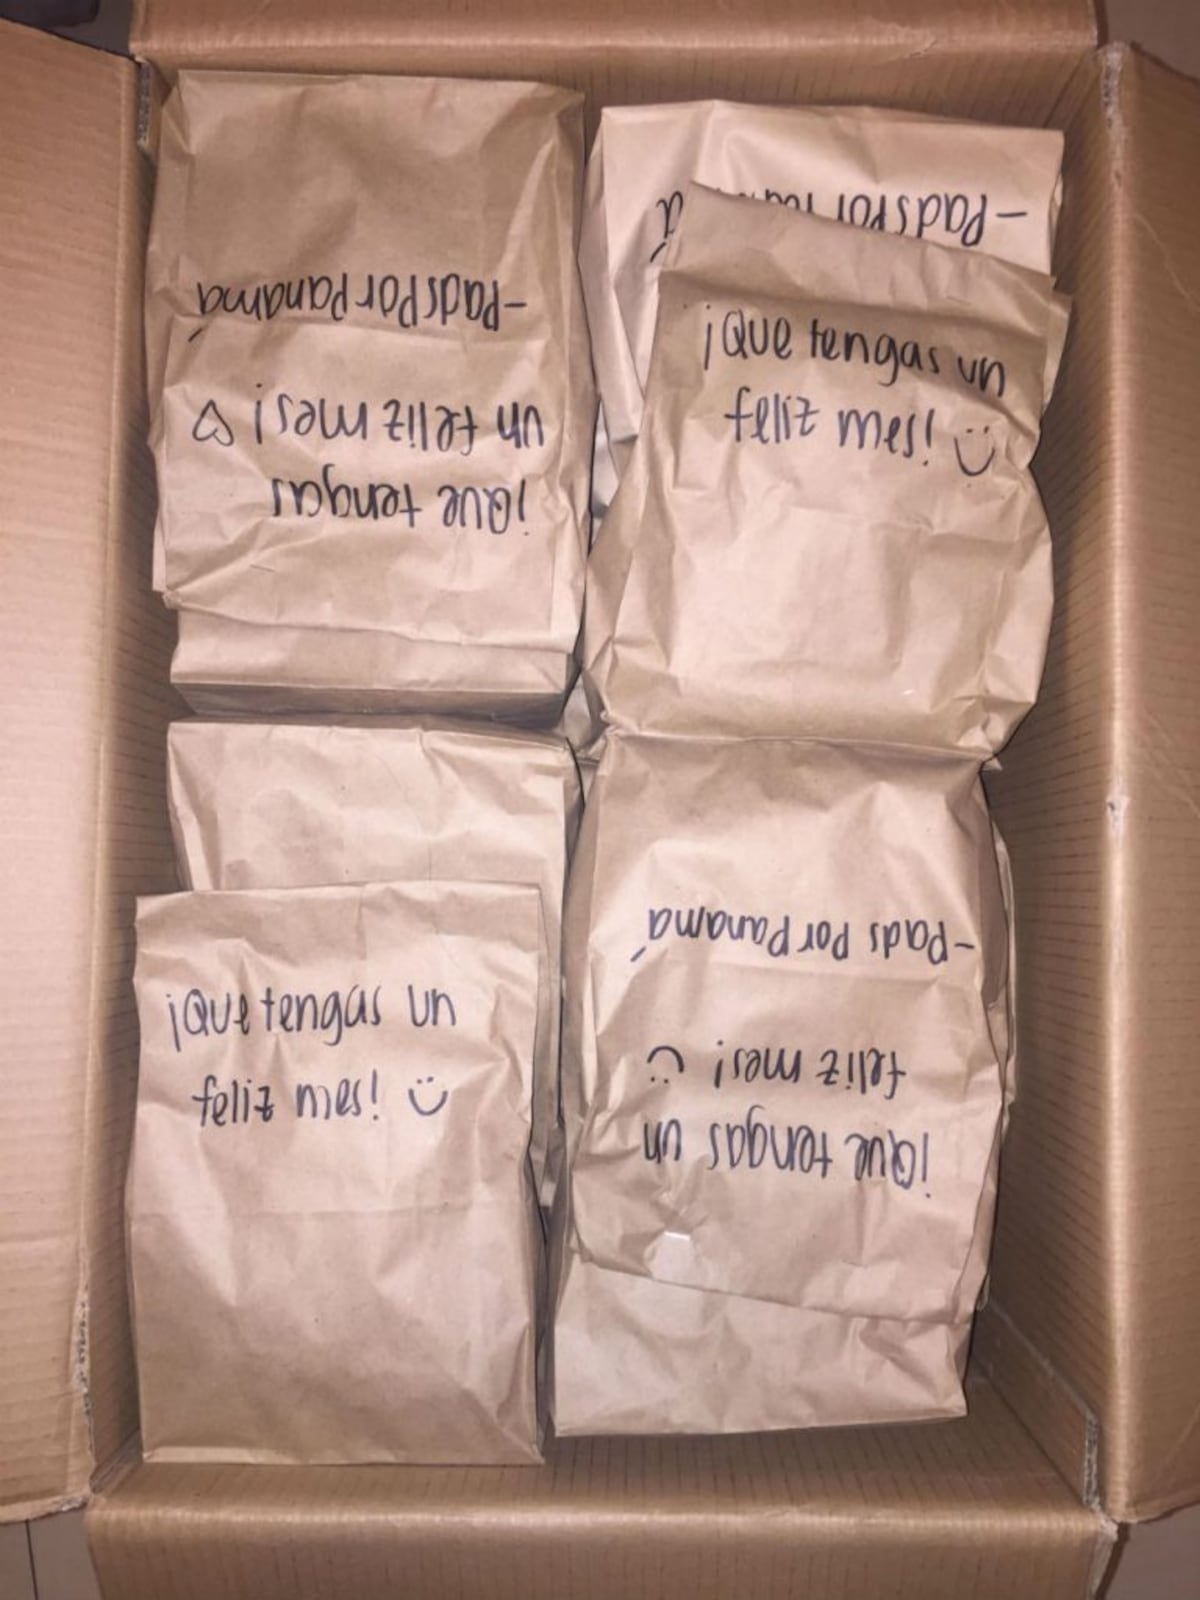 ¡Que tengas
un feliz mes! ♡
-Pads Por Panamá
-Pads Por
¡Que tengas un
feliz mes! :)
¡Que tengas un
feliz mes! :)
¡Que tengas un
feliz mes! :)
-Pads Por Panamá